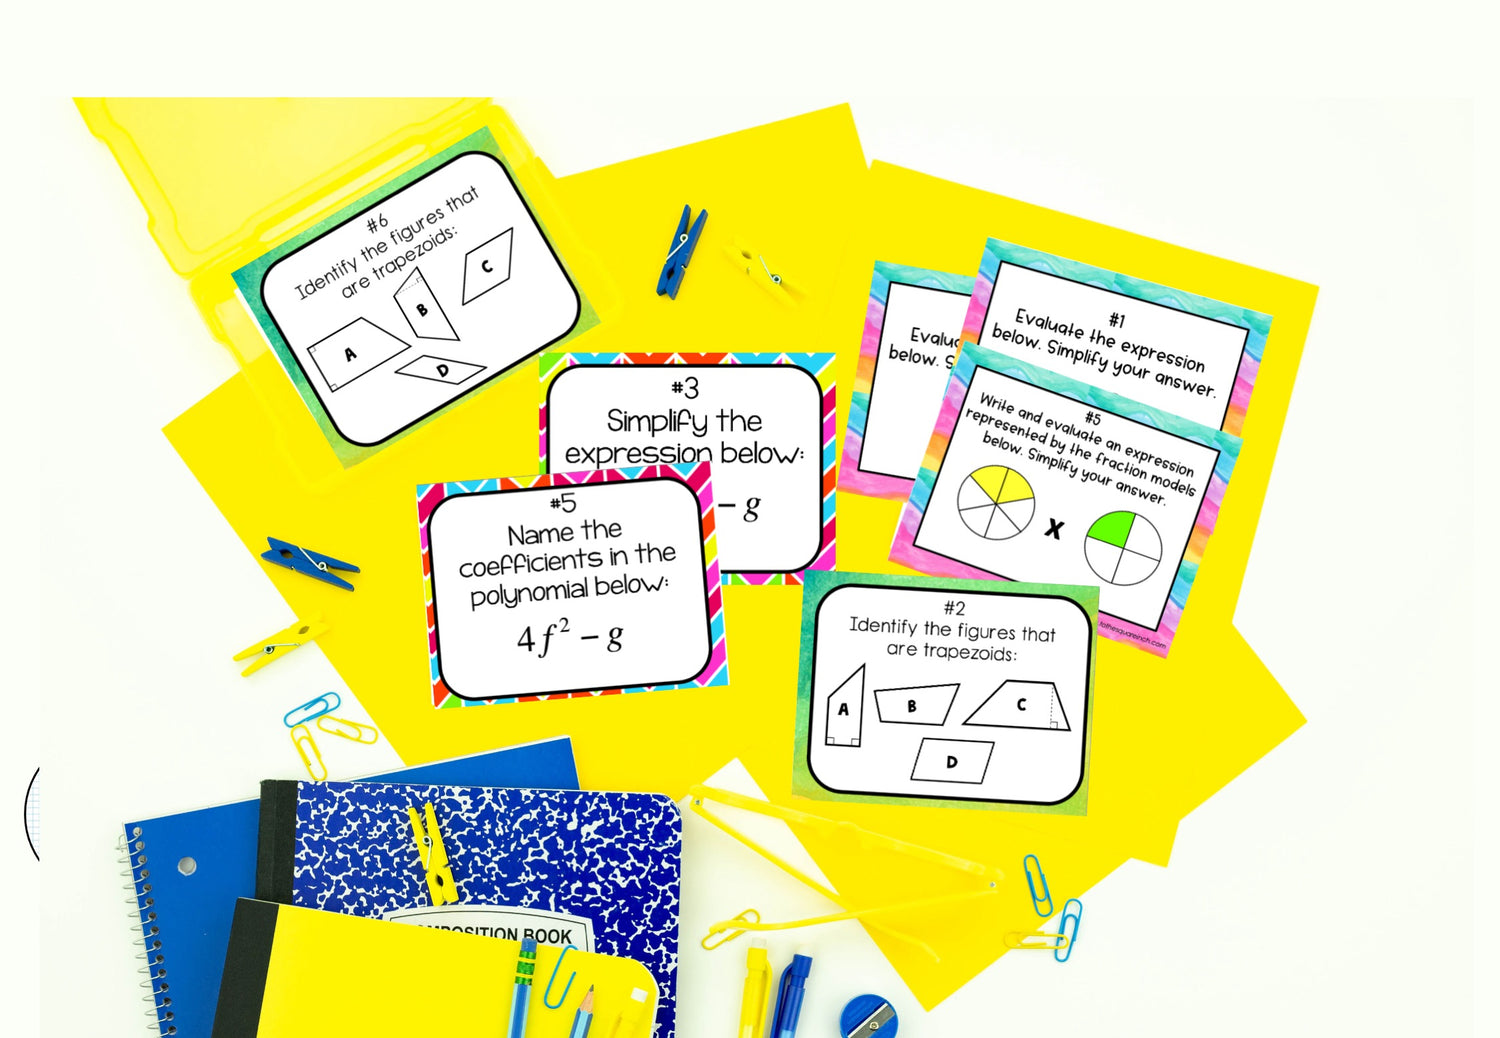 #6
Identify the figures that
are trapezoids:
A
B
C
D
#3
Simplify the
expression below:
– g
#5
Name the
coefficients in the
polynomial below:
4f² – g
below.
#1
Evaluate the expression
below. Simplify your answer.
#5
Write and evaluate an expression
represented by the fraction models
below. Simplify your answer.
X
tothesquareinch.com
#2
Identify the figures that
are trapezoids:
A
B
C
D
BOOK